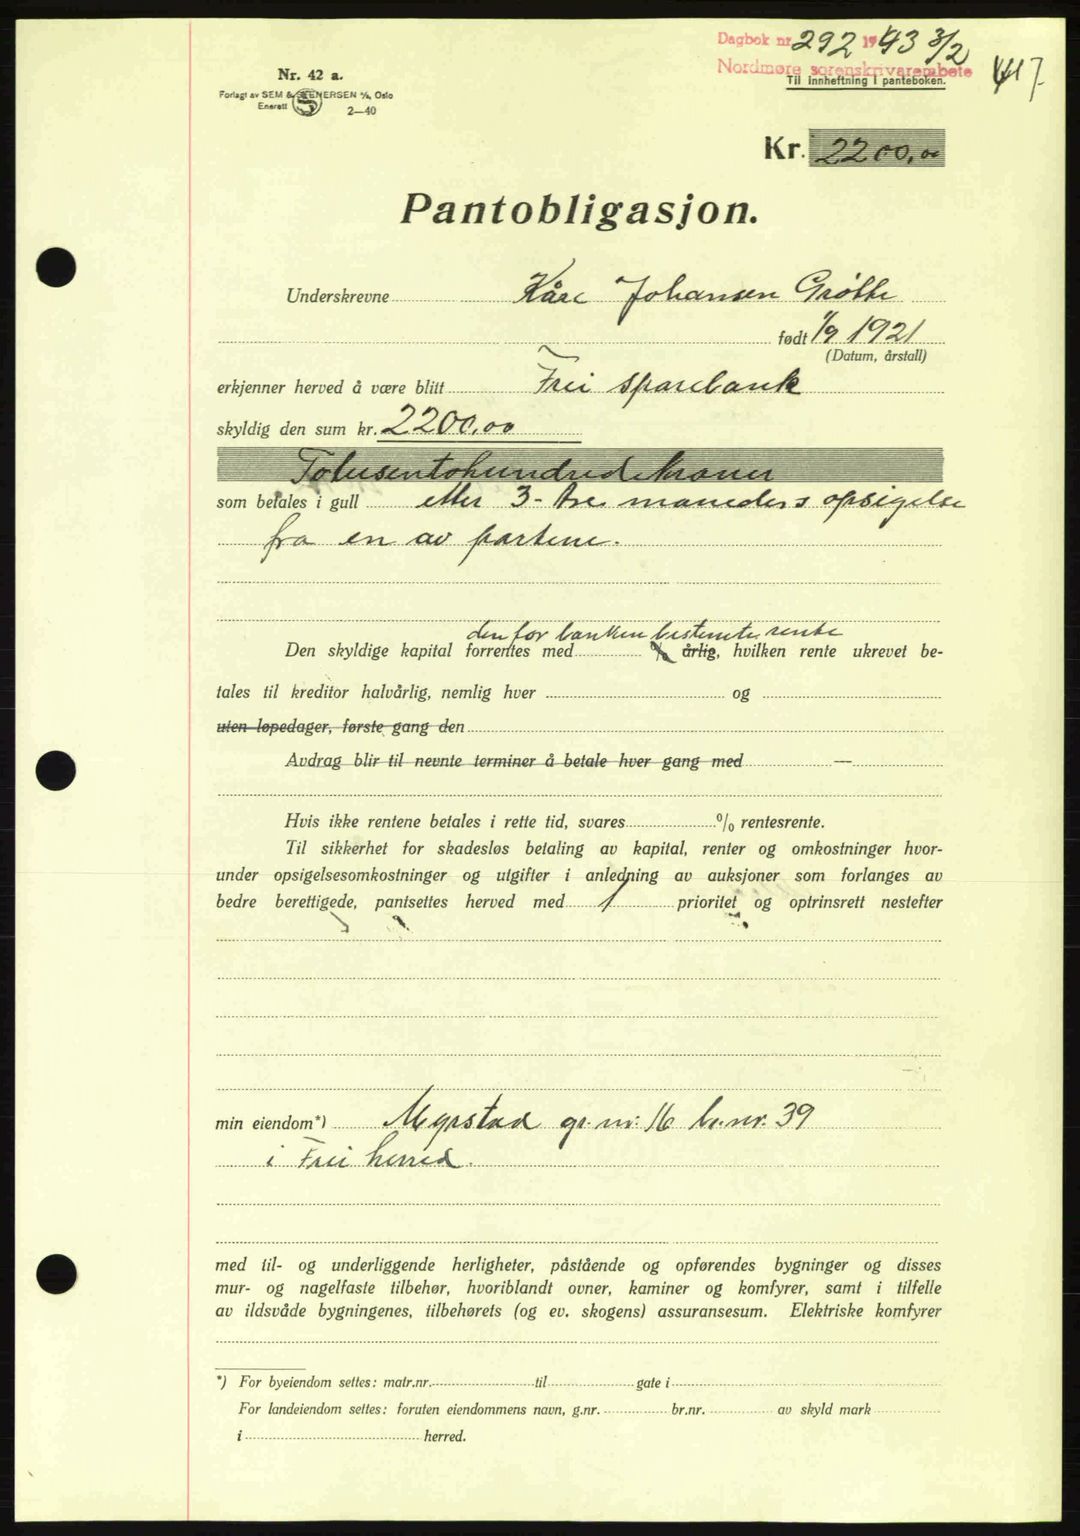 Dagbok nr. 292 1943 3/2
Nordmøre sorenskrivarembete
Til innheftning i panteboken.
Nr. 42 a.
Forlagt av SEM & STENERSEN A/S, Oslo
Enerett
2—40
Kr. 2200,00
Pantobligasjon.
Underskrevne Kåre Johansen Grøtte
født 1/9 1921
(Datum, årstall)
erkjenner herved å være blitt Frei sparebank
skyldig den sum kr. 2200,00
Totusentohundredekroner
som betales i gull etter 3- tre måneders opsigelse
fra en av partene.
den for banken bestemte rente
Den skyldige kapital forrentes med % årlig, hvilken rente ukrevet be-
tales til kreditor halvårlig, nemlig hver og
uten løpedager, første gang den
Avdrag blir til nevnte terminer å betale hver gang med —
Hvis ikke rentene betales i rette tid, svares % rentesrente.
Til sikkerhet for skadesløs betaling av kapital, renter og omkostninger hvor-
under opsigelsesomkostninger og utgifter i anledning av auksjoner som forlanges av
bedre berettigede, pantsettes herved med 1 prioritet og optrinsrett nestefter
min eiendom*) Myrstad gr. nr. 16 br. nr. 39
i Frei herred.
med til- og underliggende herligheter, påstående og opførendes bygninger og disses
mur- og nagelfaste tilbehør, hvoriblandt ovner, kaminer og komfyrer, samt i tilfelle
av ildsvåde bygningenes, tilbehørets (og ev. skogens) assuransesum. Elektriske komfyrer
*) For byeiendom settes: matr.nr. til gate i
For landeiendom settes: foruten eiendommens navn, g.nr. br.nr. av skyld mark
i herred.